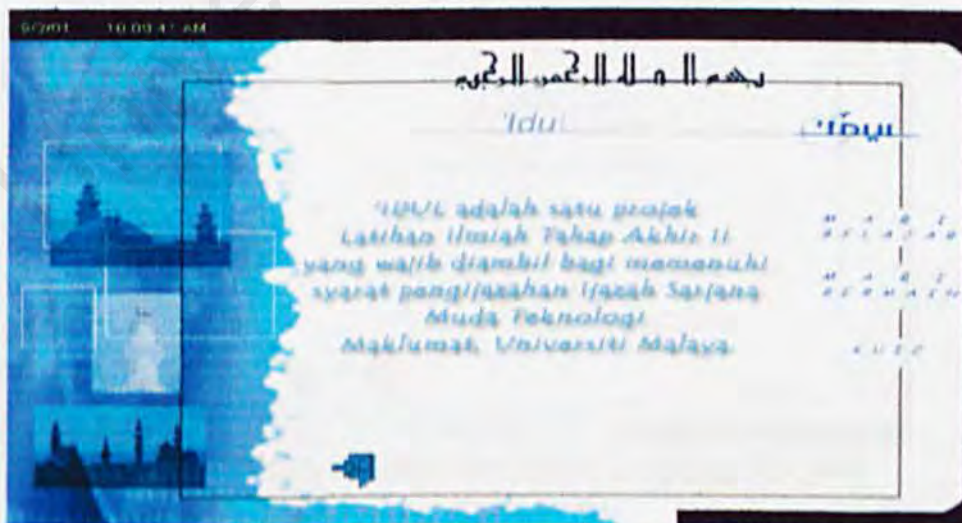 10:09:41 AM
بسم الله الرحمن الرحيم
'Idul
'IDUL adalah satu projek
Latihan Ilmiah Tahap Akhir II
yang wajib diambil bagi memenuhi
syarat pengijazahan Ijazah Sarjana
Muda Teknologi
Maklumat, Universiti Malaya
MARI
BELAJAR
MARI
BERMAIN
KUIZ